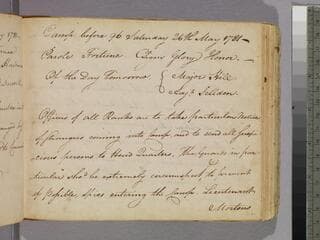 Camp before 96 Saturday 26th May 1781
Parole Fortune C. Sign Glory Honor
Of the Day Tomorrow { Major Hill
Capt. Selden
Officers of all Ranks are to take particular Notice
of strangers coming into Camp and to send all suspi
cious persons to Head Quarters, the Guards in par
ticular shd. be extremely circumspect to prevent
if possible, Spies entering the Camp. Lieutenant
Mortons